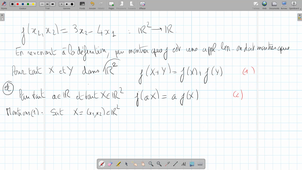 f(x₁,x₂) = 3x₂ - 4x₁ ℝ² → ℝ
En revenant à la définition, montrer que f est une appl. lin.
Pour tout X et Y dans ℝ² f(X+Y) = f(X) + f(Y)
Pour tout a∈ℝ et tout X∈ℝ² f(aX) = a f(X)
Soit X = (x₁,x₂)∈ℝ²